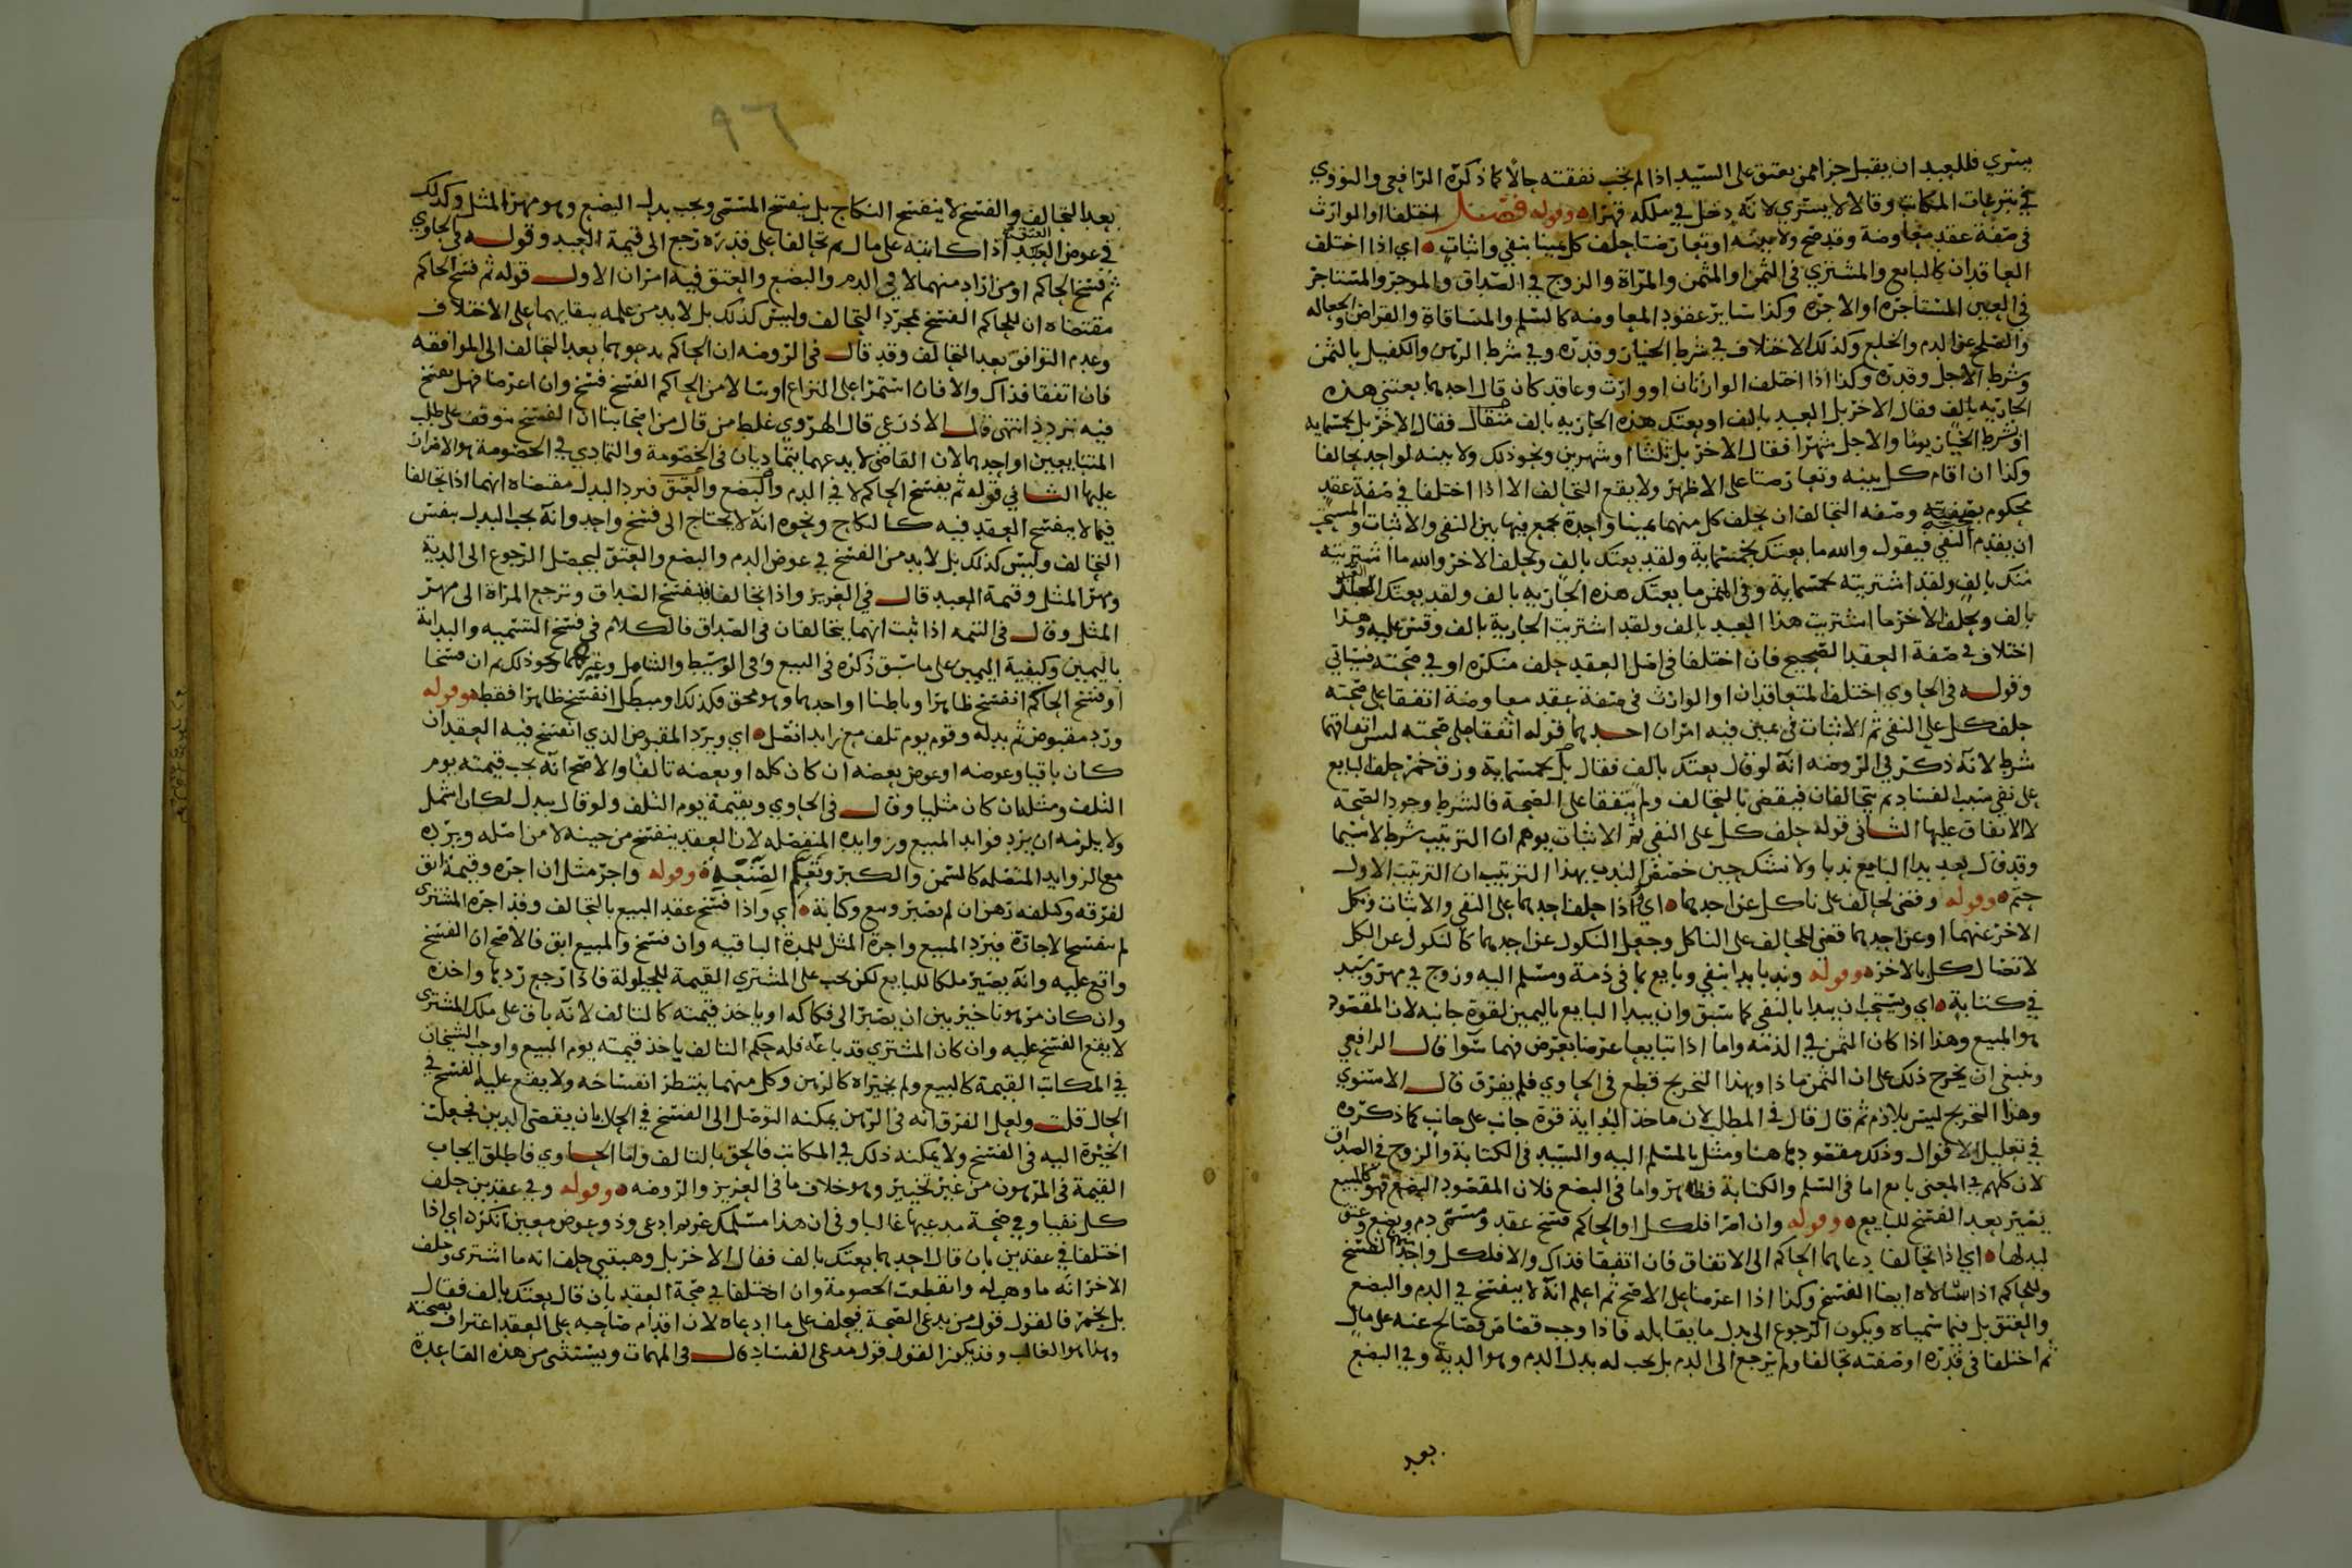 يسري فللعبد ان يقبل جزا ممن يعتق على السيد اذا لم تجب نفقته حالا كما ذكره الرافعي والنووي
في تبرعات المكاتب وقالا لا يسري لانه دخل في ملكه قهرا وقوله فصل اختلفا او الوارث
في صفة عقد معاوضة وقد صح ولا بينه او تعارضتا حلف كل يمينا بنفي واثبات اي اذا اختلف
العاقدان كالبايع والمشتري في الثمن او المثمن والمراة والزوج في الصداق والموجر والمستاجر
في العين المستاجره او الاجره وكذا ساير عقود المعاوضه كالسلم والمساقاة والقراض والجعاله
والصلح عن الدم والخلع وكذلك الاختلاف في شرط الخيار وقدره وفي شرط الرهن والكفيل بالثمن
وشرط الاجل وقدره وكذا اذا اختلف الوارثان او وارث وعاقد كان قال احدهما بعتني هذه
الجاريه بالف وقال الاخر بل العبد بالف او بعتك هذه الجاريه بالف مثقال فقال الاخر بل بخمسمايه
او شرط الخيار يوما والاجل شهرا فقال الاخر بل ثلثا او شهرين ونحو ذلك ولا بينه لواحد تحالفا
وكذا ان اقام كل بينه وتعارضتا على الاظهر ولا يقع التحالف الا اذا اختلفا في صفة عقد
محكوم بصحته وصفه التحالف ان يحلف كل منهما يمينا واحدة يجمع فيها بين النفي والاثبات والمستحب
ان يقدم النفي فيقول والله ما بعتك بخمسماية ولقد بعتك بالف ويحلف الاخر والله ما اشتريته
منك بالف ولقد اشتريته بخمسماية وفي المثمن ما بعتك هذه الجاريه بالف ولقد بعتك العبد
بالف ويحلف الاخر ما اشتريت هذا العبد بالف ولقد اشتريت الجارية بالف وقس عليه وهذا
اختلاف في صفة العقد الصحيح فان اختلفا في اصل العقد حلف منكره او في صحته فسياتي
وقوله في الحاوي اختلف المتعاقدان او الوارث في صفة عقد معاوضة اتفقا على صحته
حلف كل على النفي ثم الاثبات في يمين فيه امران احدهما قوله اتفقا على صحته ليس اتفاقهما
شرط لانه ذكر في الروضه انه لو قال بعتك بالف فقال بل بخمسماية وزق خمر حلف البايع
على نفي سبب الفساد ثم يتحالفان فيقضي بالتحالف ولم يتفقا على الصحة فالشرط وجود الصحة
لا الاتفاق عليها الثاني قوله حلف كل على النفي ثم الاثبات يوهم ان الترتيب شرط لا سيما
وقد قال بعد بدا البايع ندبا ولا نشك حين خصص الندب بهذا الترتيب ان الترتيب الاول
حتم وقوله وقضي لحالف على ناكل عن احدهما اي واذا حلف احدهما على النفي والاثبات ونكل
الاخر عنهما او عن احدهما قضي للحالف على الناكل وجعل النكول عن احدهما كالنكول عن الكل
لاتصال كل بالاخر وقوله وندبا بدا بنفي وبايع بما في ذمة ومسلم اليه وزوج في مهر وسيد
في كتابة اي ويستحب ان يبدا بالنفي كما سبق وان يبدا البايع باليمين لقوة جانبه لان المقصود
هو المبيع وهذا اذا كان الثمن في الذمه واما اذا تبايعا عرضا بعرض فهما سوا قال الرافعي
وينبغي ان يخرج ذلك على ان الثمن ماذا وبهذا التخريج قطع في الحاوي فلم يفرق قال الاسنوي
وهذا التخريج ليس بلازم ثم قال قال في المطلب لان ماخذ البداية قوة جانب على جانب كما ذكروه
في تعليل الاقوال وذلك مفقود هاهنا ومثل بالمسلم اليه والسيد في الكتابة والزوج في الصداق
لان كلهم في المعنى بايع اما في السلم والكتابة فظاهر واما في البضع فلان المقصود البضع فهو كالمبيع
يصير بعد الفسخ للبايع وقوله وان اصرا فلكل او الحاكم فسخ عقد ومسمى دم وبضع وعتق
لبدلها اي اذا تحالفا دعاهما الحاكم الى الاتفاق فان اتفقا فذاك والا فلكل واحد منهما الفسخ
وللحاكم اذا سالاه ايضا الفسخ وكذا اذا اعرضا على الاصح ثم اعلم انه لا ينفسخ في الدم والبضع
والعتق بل فيما سمياه ويكون الرجوع الى بدل ما يقابله فاذا وجب قصاص فصالح عنه على مال
ثم اختلفا في قدره او صفته تحالفا ولم يرجع الى الدم بل يجب له بدل الدم وهو الدية وفي البضع
بعد
٩٦
بعد التحالف والفسخ لا ينفسخ النكاح بل ينفسخ المسمى ويجب بدل البضع وهو مهر المثل وكذلك
في عوض العتق اذا كاتبه على مال ثم تحالفا على قدره رجع الى قيمة العبد وقوله في الحاوي
ثم فسخ الحاكم او من اراد منهما لا في الدم والبضع والعتق فيه امران الاول قوله ثم فسخ الحاكم
مقتضاه ان للحاكم الفسخ بمجرد التحالف وليس كذلك بل لابد من علمه ببقايهما على الاختلاف
وعدم التوافق بعد التحالف وقد قال في الروضه ان الحاكم يدعوهما بعد التحالف الى الموافقه
فان اتفقا فذاك والا فان استمرا على النزاع او سالا من الحاكم الفسخ فسخ وان اعرضا فهل يفسخ
فيه تردد انتهى قال الاذرعي قال الهروي غلط من قال من اصحابنا ان الفسخ متوقف على طلب
المتبايعين او احدهما لان القاضي لا يدعهما يتماديان في الخصومة والتمادي في الخصومة هو الاصرار
عليها الثاني قوله ثم يفسخ الحاكم لا في الدم والبضع والعتق فيرد البدل مقتضاه انهما اذا تحالفا
فيما لا ينفسخ العقد فيه كالنكاح ونحوه انه لا يحتاج الى فسخ واحد وانه يجب البدل بنفس
التحالف وليس كذلك بل لابد من الفسخ في عوض الدم والبضع والعتق ليحصل الرجوع الى الدية
ومهر المثل وقيمة العبد قال في العزيز واذا تحالفا فينفسخ الصداق وترجع المراة الى مهر
المثل وقال في التتمه اذا ثبت انهما يتحالفان في الصداق فالكلام في فسخ التسميه والبداية
باليمين وكيفية اليمين على ما سبق ذكره في البيع وفي الوسيط والشامل وغيرهما نحو ذلك ثم ان فسخا
او فسخ الحاكم انفسخ ظاهرا وباطنا او احدهما وهو محق فكذلك او مبطل انفسخ ظاهرا فقط وقوله
ورد مقبوض ثم بدله وقوم يوم تلف مع زايد اتصل اي ويرد المقبوض الذي انفسخ فيه العقد ان
كان باقيا وعوضه او عوض بعضه ان كان كله او بعضه تالفا والاصح انه يجب قيمته يوم
التلف ومثله ان كان مثليا وقال في الحاوي وبقيمة يوم التلف ولو قال ببدل لكان اشمل
ولا يلزمه ان يرد فوايد المبيع وزوايده المنفصله لان العقد ينفسخ من حينه لا من اصله ويرده
مع الزوايد المتصله كالسمن والكبر وتعلم الصنعة وقوله واجر مثل ان اجره وقيمة ان ابق
لفرقه وكلفه رهن ان لم يصبر وبيع وكتابة اي واذا فسخ عقد البيع بالتحالف وقد اجره المشتري
لم تنفسخ الاجارة فيرد المبيع واجرة المثل للمدة الباقيه وان فسخ والمبيع ابق فالاصح ان الفسخ
واقع عليه وانه يصير ملكا للبايع لكن يجب على المشتري القيمة للحيلولة فاذا رجع ردها واخذه
وان كان مرهونا خير بين ان يصبر الى فكاكه او ياخذ قيمته كالتالف لانه باق على ملك المشتري
لا يقع الفسخ عليه وان كان المشتري قد باعه فله حكم التالف ياخذ قيمته يوم البيع واوجب الشيخان
في المكاتب القيمة كالبيع ولم يخيراه كالرهن وكل منهما ينتظر انفساخه ولا يقع عليه الفسخ في
الحال قلت ولعل الفرق انه في الرهن يمكنه التوصل الى الفسخ في الحال بان يقضي الدين فجعلت
الخيرة اليه في الفسخ ولا يمكنه ذلك في المكاتب فالحق بالتالف واما الحاوي فاطلق ايجاب
القيمة في المرهون من غير تخيير وهو خلاف ما في العزيز والروضه وقوله وفي عقدين حلف
كل نفيا وفي صحة مدعيها غالبا وفي ان هذا مسلمك غريم ادعى وذو عوض معين انكر اي اذا
اختلفا في عقدين بان قال احدهما بعتك بالف فقال الاخر بل وهبتني حلف انه ما اشترى وحلف
الاخر انه ما وهب له وانقطعت الخصومة وان اختلفا في صحة العقد بان قال بعتك بالف فقال
بل بخمر فالقول قول من يدعي الصحة فيحلف على ما ادعاه لان اقدام صاحبه على العقد اعتراف بصحته
وهذا هو الغالب وقد يكون القول قول مدعي الفساد قال في المهمات ويستثنى من هذه القاعدة